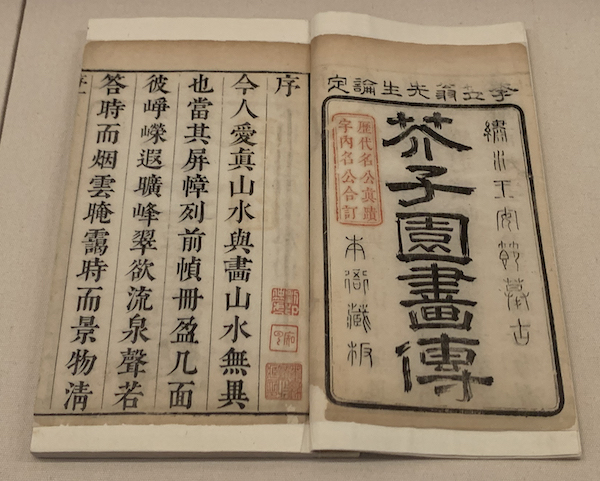 李笠翁先生論定
繡水王安節摹古
芥子園畫傳
歷代名公真蹟
宇內名公合訂
本衙藏板
序
今人愛真山水與畵山水無異
也當其屏幛列前幀冊盈几面
彼崢嶸遐曠峰翠欲流泉聲若
答時而烟雲晻靄時而景物清